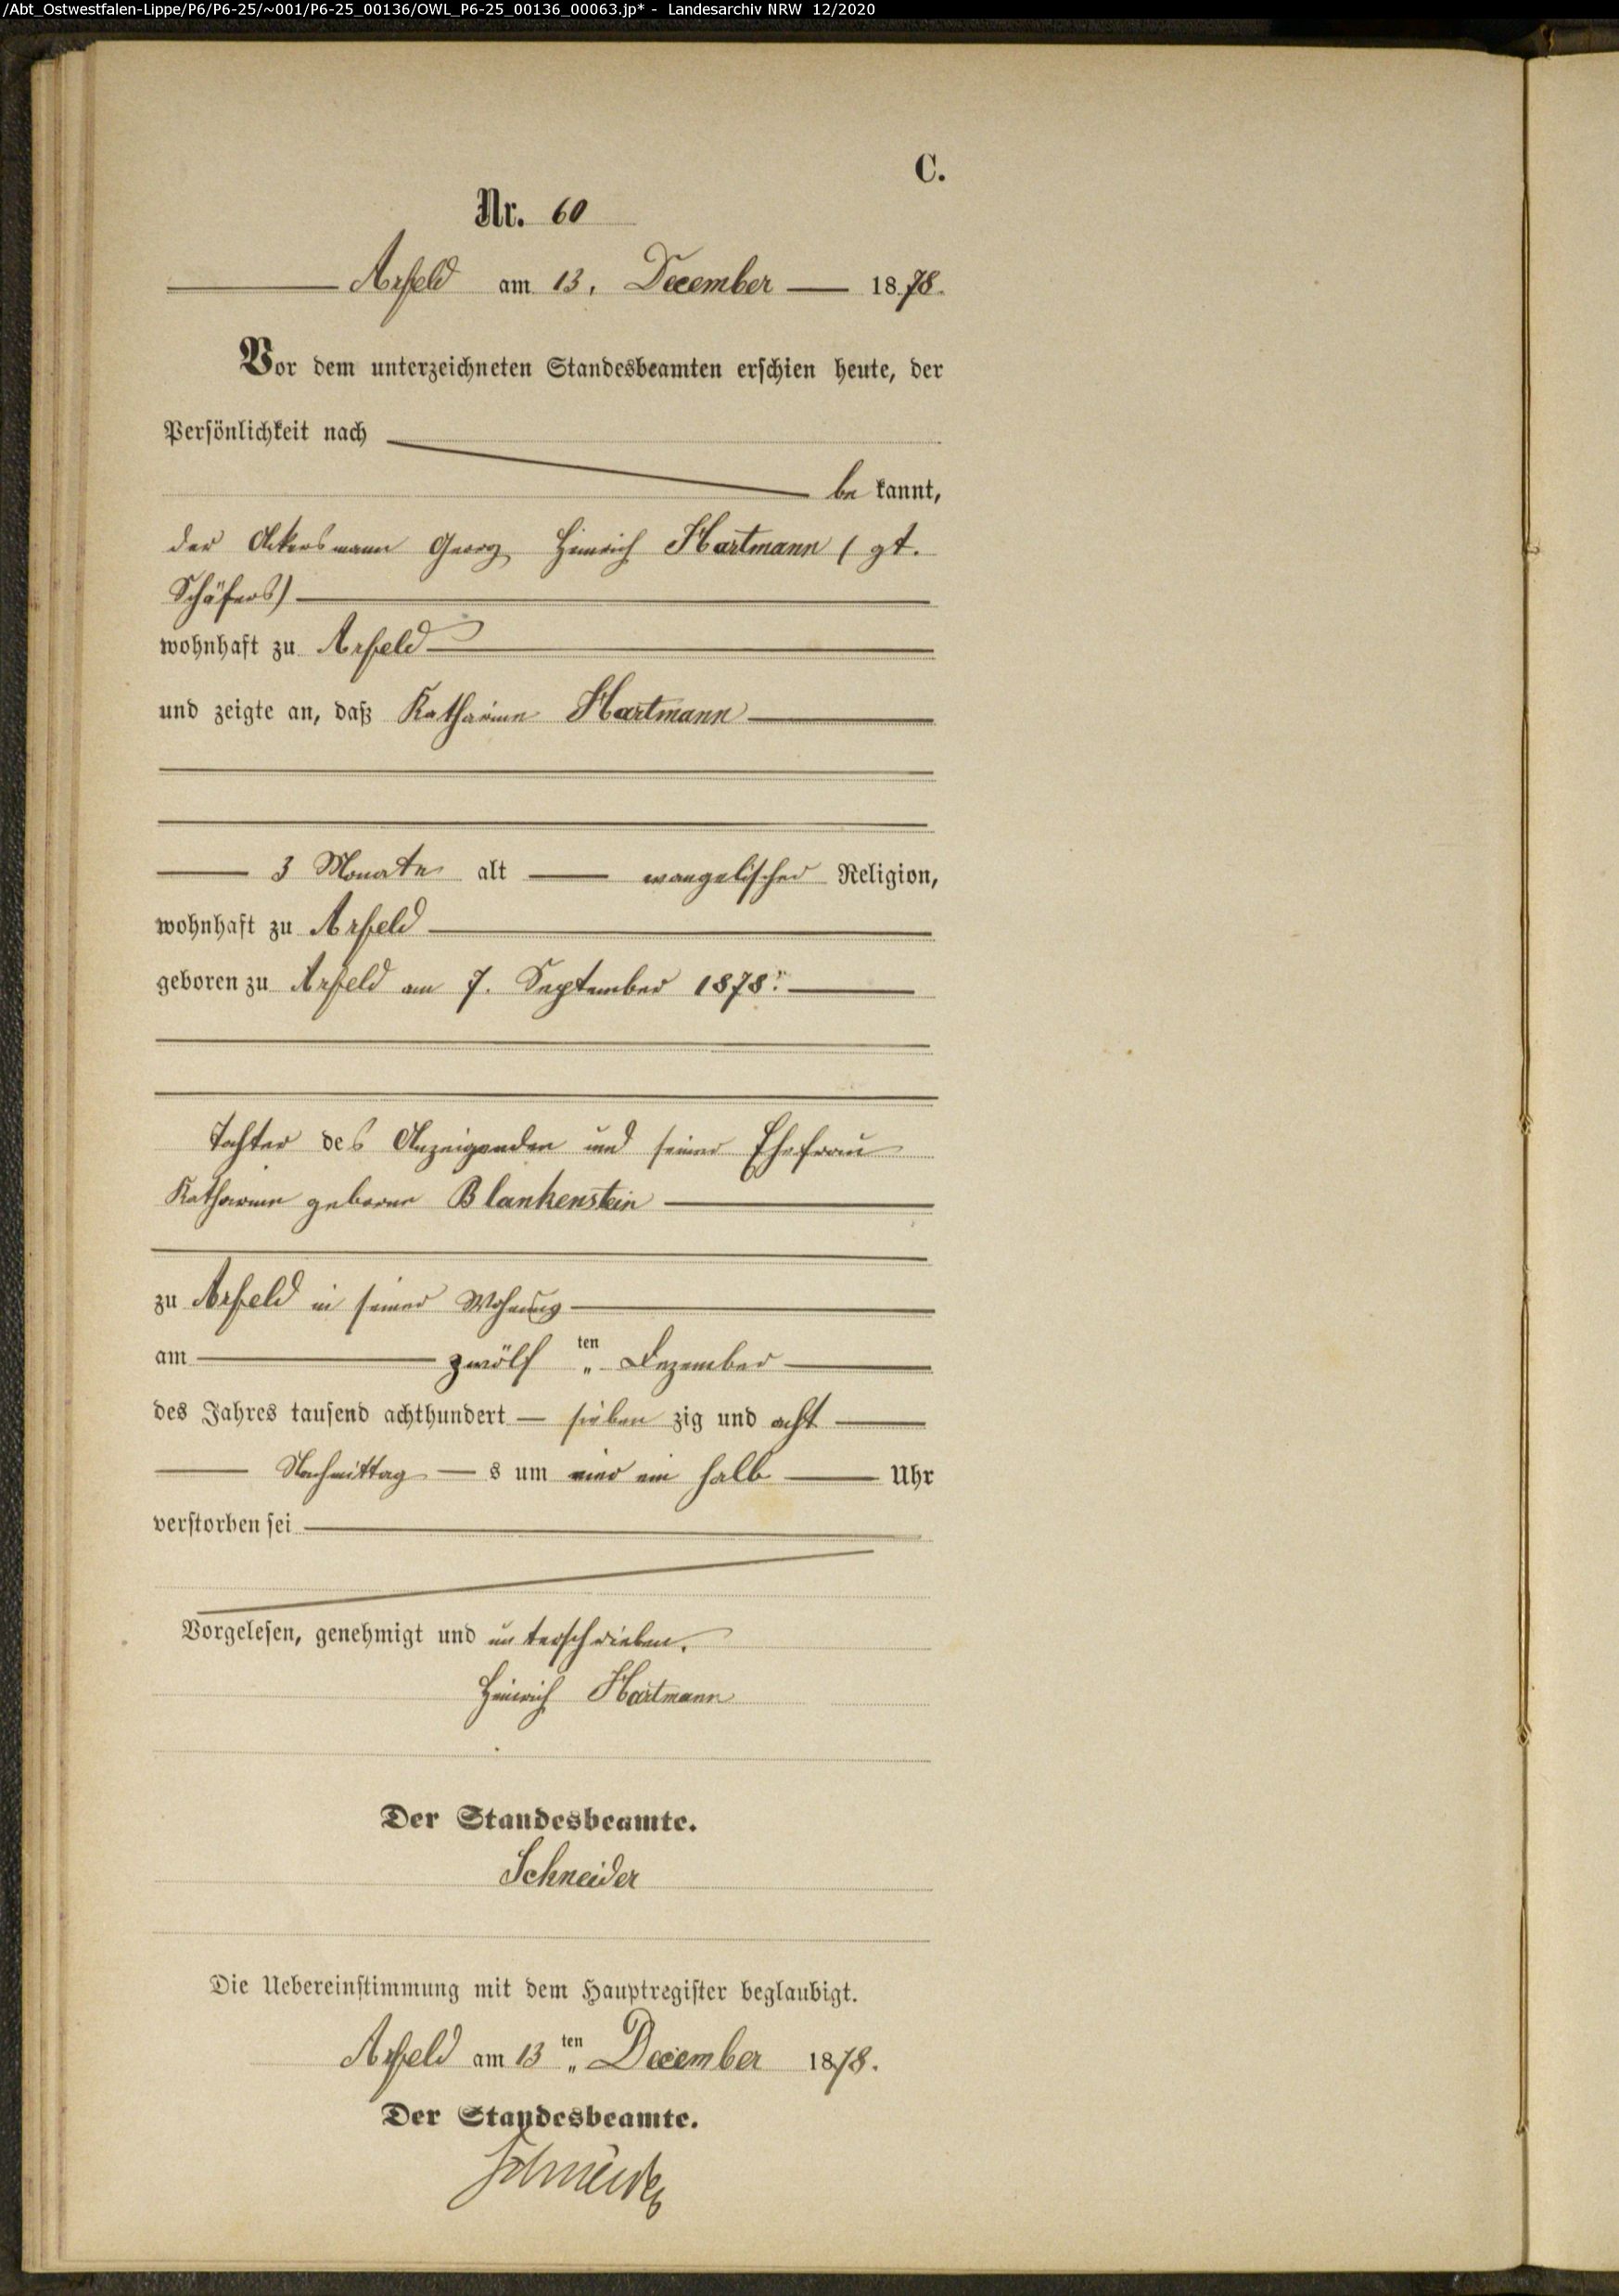 /Abt_Ostwestfalen-Lippe/P6/P6-25/~001/P6-25_00136/OWL_P6-25_00136_00063.jp* - Landesarchiv NRW 12/2020
C.
Nr. 60
Arfeld am 13. December 1878.
Vor dem unterzeichneten Standesbeamten erschien heute, der
Persönlichkeit nach
be kannt,
der Ackersmann Georg Heinrich Hartmann (gt.
Schäfers)
wohnhaft zu Arfeld
und zeigte an, daß Katharine Hartmann
3 Monate alt evangelischer Religion,
wohnhaft zu Arfeld
geboren zu Arfeld am 7. September 1878.
Tochter des Anzeigenden und seiner Ehefrau
Katharine geborne Blankenstein
zu Arfeld in seiner Wohnung
am zwölf ten Dezember
des Jahres tausend achthundert sieben zig und acht
Nachmittag s um vier ein halb Uhr
verstorben sei
Vorgelesen, genehmigt und unterschrieben.
Heinrich Hartmann
Der Standesbeamte.
Schneider
Die Uebereinstimmung mit dem Hauptregister beglaubigt.
Arfeld am 13 ten December 1878.
Der Standesbeamte.
Schneider